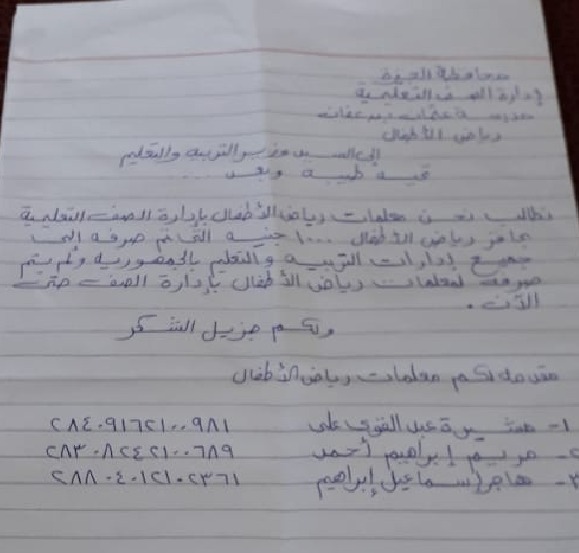 محافظة الجيزة
إدارة الصف التعليمية
مدرسة عثمان بن عفان
رياض الأطفال
إلى السيد وزير التربية والتعليم
تحية طيبة وبعد ....
نطالب نحن معلمات رياض الأطفال بإدارة الصف التعليمية
بحافز رياض الأطفال ١٠٠٠ جنيه التى تم صرفه إلى
جميع إدارات التربية والتعليم بالجمهورية ولم يتم
صرفه لمعلمات رياض الأطفال بإدارة الصف حتى
الآن .
ولكم جزيل الشكر
مقدمه لكم معلمات رياض الأطفال
١- عبد القوى على ٢٨٤٠٩١٦٢١٠٠٩٨١
٢- مريم إبراهيم أحمد ٢٨٣٠٨٢٤٢١٠٠٦٨٩
٣- هاجر إسماعيل إبراهيم ٢٨٨٠٤٠١٢١٠٢٣٦١